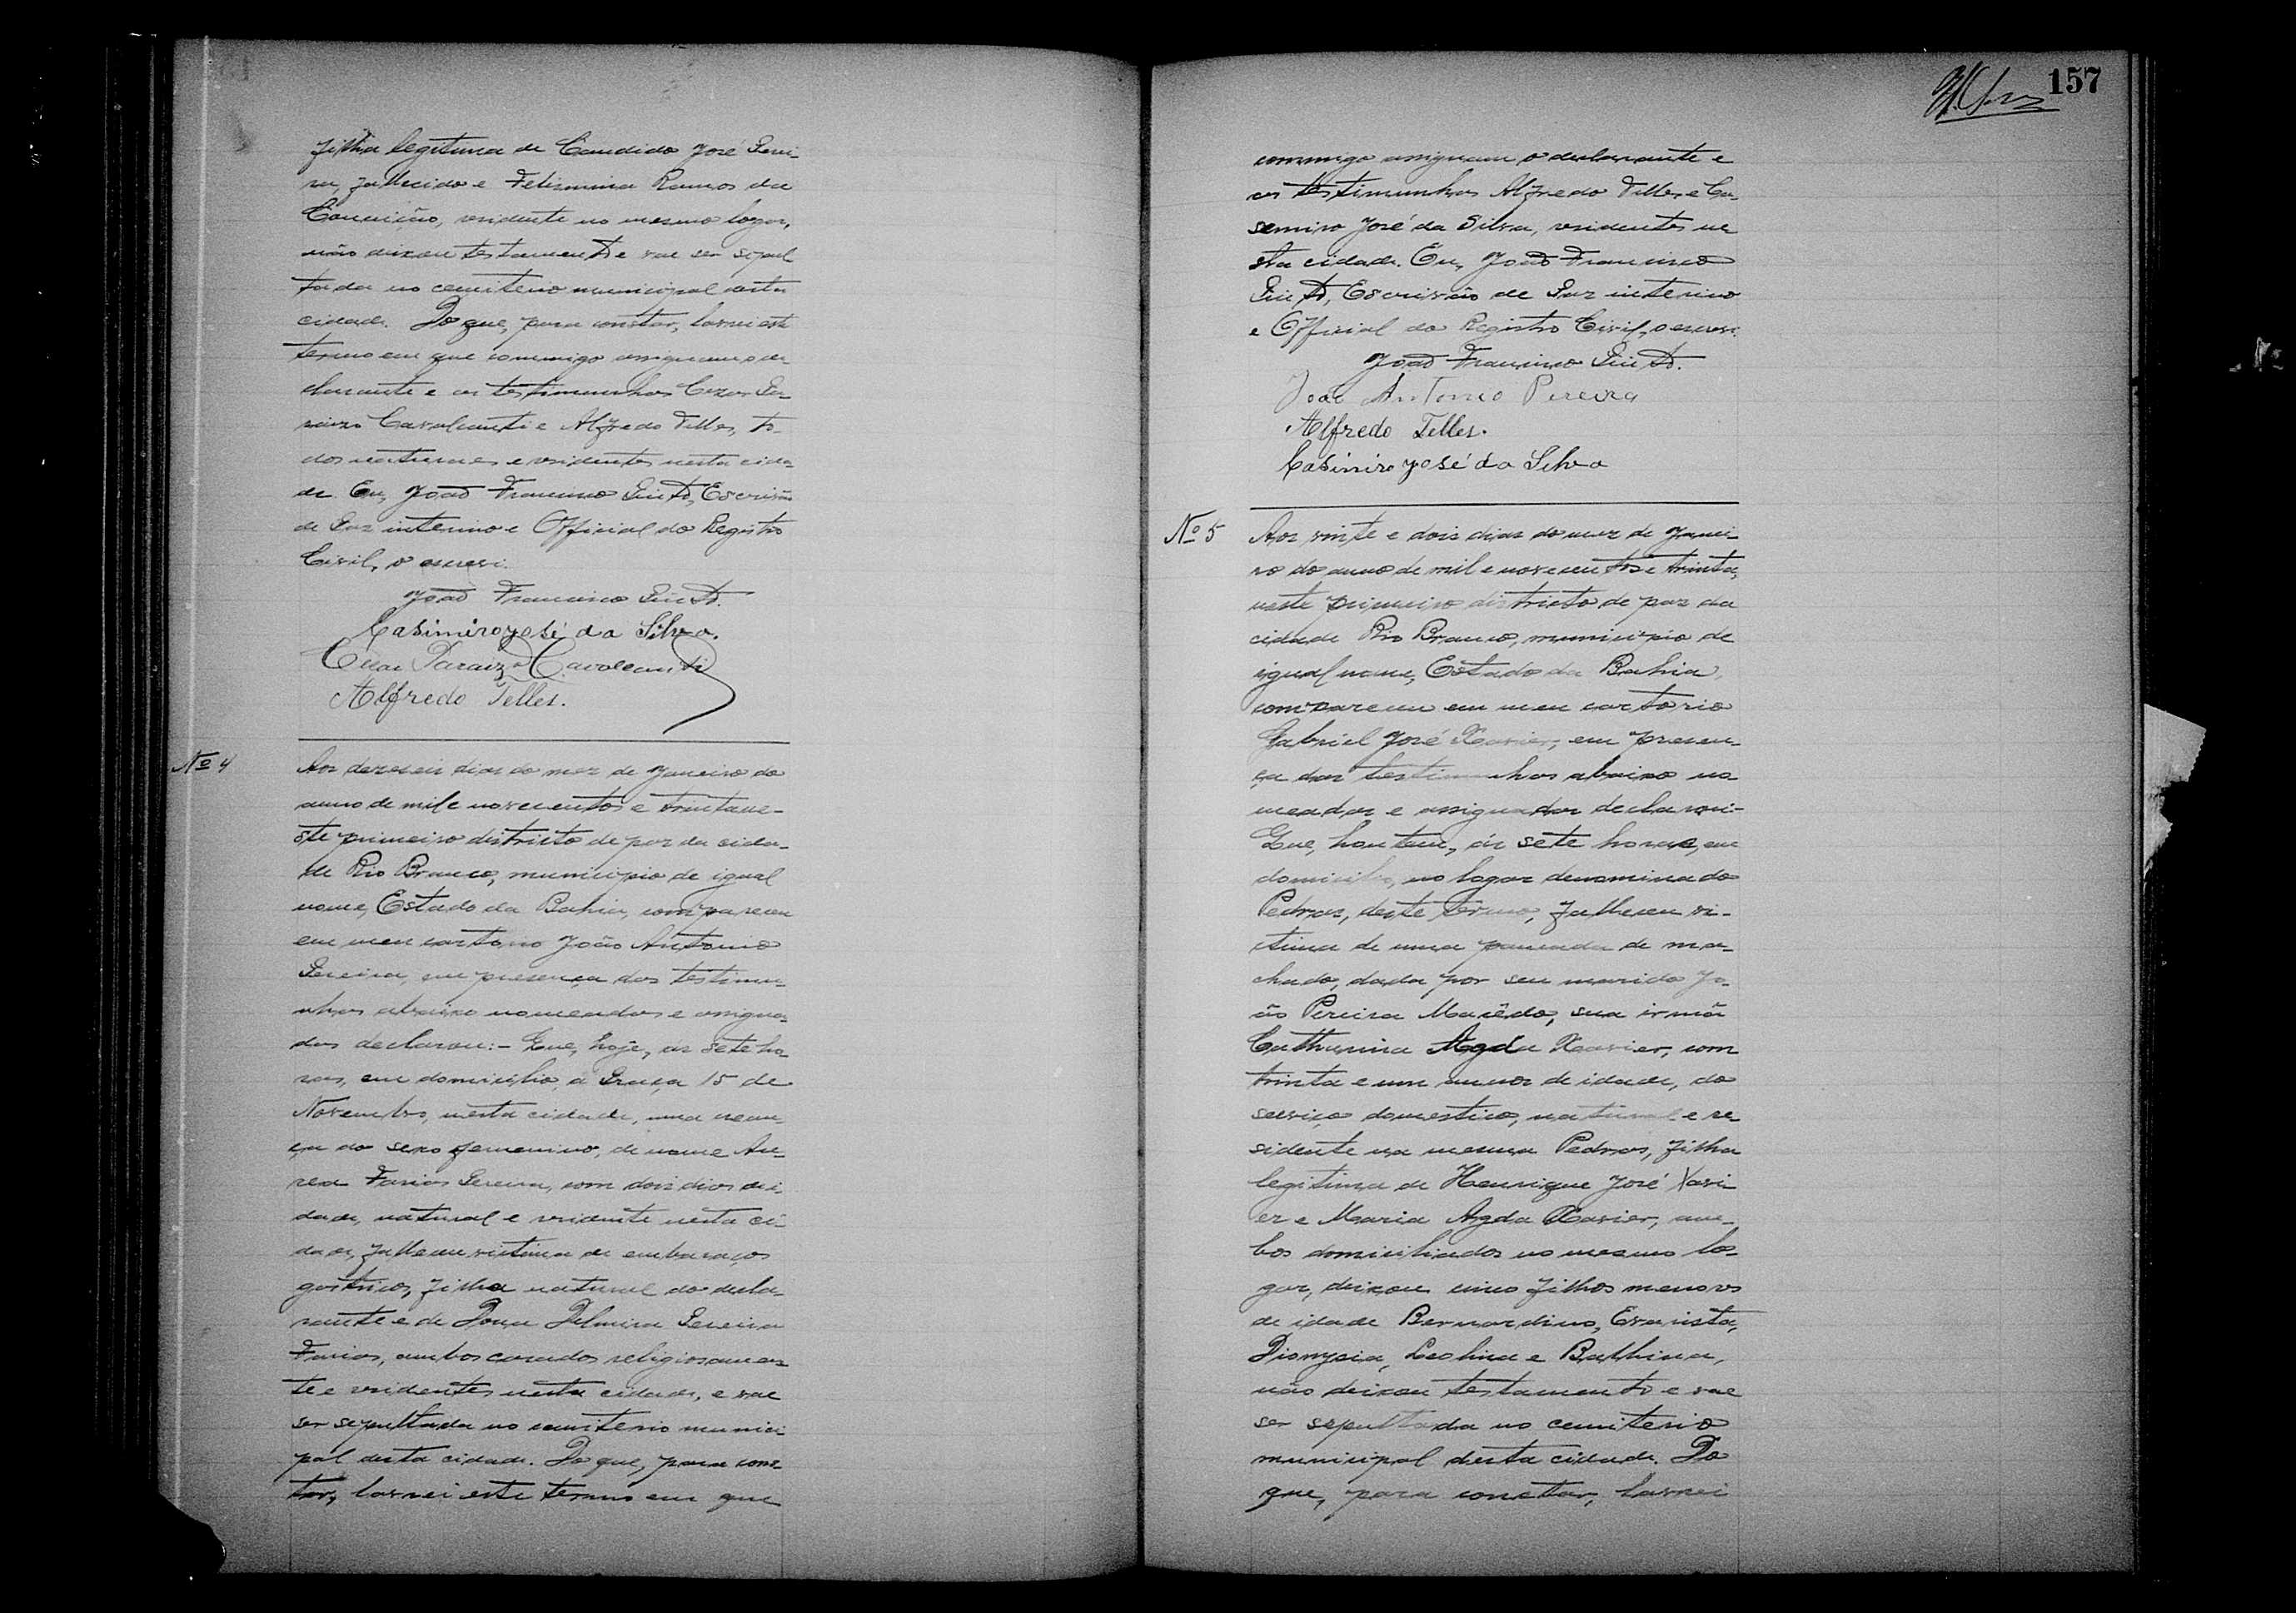 filha legitima de Candido José Perei-
ra, fallecido e Felismina Ramos da
Conceição, residente no mesmo logar,
não deixou testamento e vae ser sepul
tada no cemiterio municipal desta
cidade. Do que, para constar, lavrei este
termo em que commigo assignam o de
clarante e as testimunhas Cezar Pa-
raizo Cavalcanti e Alfredo Telles, to-
dos naturaes e residentes nesta cida
de. Eu, João Francisco Pinto, Escrivão
de Paz interino e Official do Registro
Civil, o escrevi.
João Francisco Pinto.
Casimiro José da Silva.
Cesar Paraizo Cavalcanti
Alfredo Telles.
Nº 4
Aos dezeseis dias do mez de Janeiro do
anno de mil e novecentos e trinta ne-
ste primeiro districto de paz da cida-
de Rio Branco, municipio de igual
nome, Estado da Bahia, compareceu
em meu cartorio João Antonio
Pereira, em presença das testimu-
nhas abaixo nomeadas e assigna-
das declarou:- Que, hoje, as sete ho-
ras, em domicilio, á Praça 15 de
Novembro, nesta cidade, uma crean-
ça do sexo femenino, de nome Au-
rea Farias Pereira, com dois dias dei-
dade, natural e residente nesta ci-
dade, falleceu victima de embaraços
gastricos, filha natural do decla-
rante e de Dona Delmira Pereira
Farias, ambos casados religiosamen-
te e residentes nesta cidade, e vae
ser sepultada no cemiterio munici-
pal desta cidade. Do que, para cons-
tar, lavrei este termo em que
157
commigo assignam o declarante e
as testimunhas Alfredo Telles e Ca-
semiro José da Silva, residentes ne
sta cidade. Eu, João Francisco
Pinto, Escrivão de Paz interino
e Official do Registro Civil, o escrevi.
João Francisco Pinto.
João Antonio Pereira
Alfredo Telles.
Casimiro José da Silva
Nº 5
Aos vinte e dois dias do mez de Janei-
ro do anno de mil e novecentos e trinta,
neste primeiro districto de paz da
cidade Rio Branco, municipio de
igual nome, Estado da Bahia,
compareceu em meu cartorio
Gabriel José Xavier, em presen-
ça das testimunhas abaixo no
meadas e assignadas declarou:-
Que, hontem, ás sete horas, em
domicilio, no logar denominado
Pedras, deste termo, falleceu vi-
ctima de uma pancada de ma-
chado, dada por seu marido Jo-
ão Pereira Macêdo, sua irmã
Catharina Agda Xavier, com
trinta e um annos de idade, do
serviço domestico, natural e re
sidente na mesma Pedras, filha
legitima de Henrique José Xavi-
er e Maria Agda Xavier, am-
bos domiciliados no mesmo lo-
gar, deixou cinco filhos menores
de idade Bernardino, Evarista,
Dionysia, Leolina e Balbina,
não deixou testamento e vae
ser sepultada no cemiterio
municipal desta cidade. Do
que, para constar, lavrei